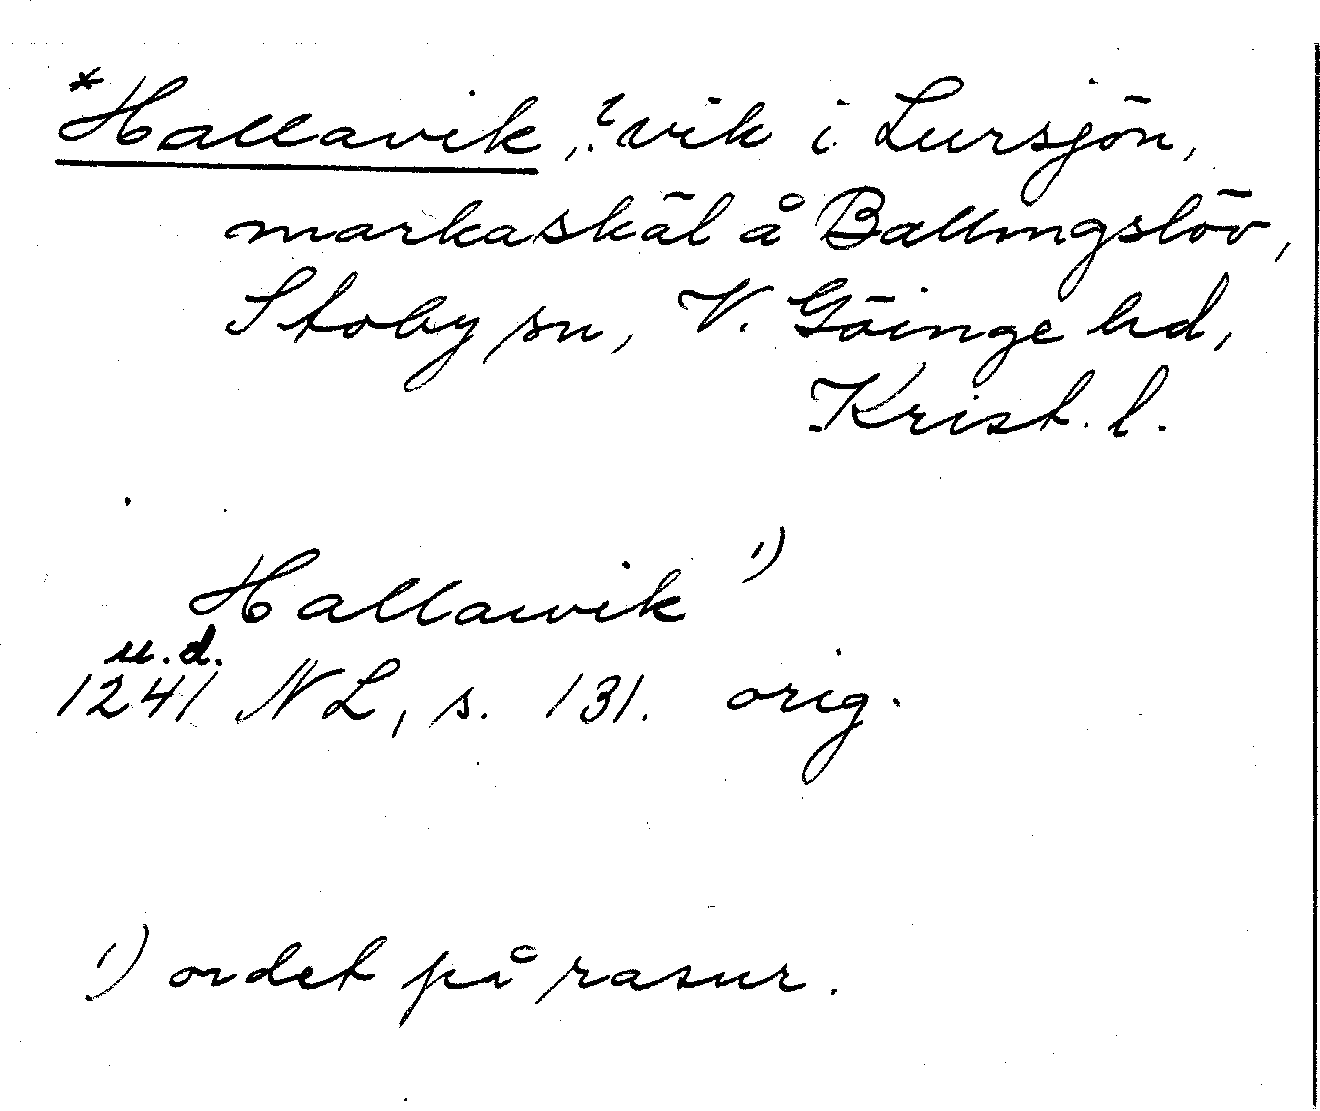 *Hallavik, ? vik i Lursjön,
markaskäl å Ballingslöv,
Stoby sn, V. Göinge hd,
Krist. l.
Hallawik ¹)
u.d.
1241 NL, s. 131. orig.
¹) ordet på rasur.